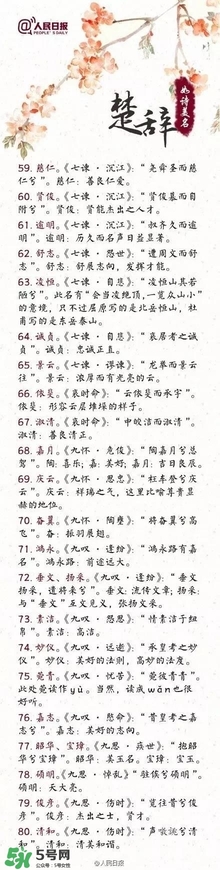 @人民日报
PEOPLE'S DAILY
如诗美名
楚辞
59. 慈仁。《七谏·沉江》：“尧舜圣而慈
仁兮”。慈仁：善良仁爱。
60. 贤俊。《七谏·沉江》：“贤俊慕而自
附兮”。贤俊：贤能杰出之人才。
61. 逾明。《七谏·沉江》：“叔齐久而逾
明”。逾明：历久而名声日益显著。
62. 舒志。《七谏·怨世》：“遭周文而舒
志”。舒志：舒展志向，发挥才能。
63. 凌恒。《七谏·自悲》：“凌恒山其若
陋兮”。此名有“会当凌绝顶,一览众山小”
的意境，只不过屈原写的是北岳恒山，杜
甫写的是东岳泰山。
64. 诚贞。《七谏·自悲》：“哀居者之诚
贞”。诚贞：忠诚正直。
65. 景云。《七谏·谬谏》：“龙举而景云
往”。景云：浓厚而有光亮的云。
66. 依斐。《哀时命》：“云依斐而承宇”。
依斐：形容云层堆垛的样子。
67. 淑清。《哀时命》：“中皎洁而淑清”。
淑清：善良清正。
68. 嘉月。《九怀·危俊》：“陶嘉月兮总
驾”。陶：喜乐；嘉：美好；嘉月：吉日良辰。
69. 庆云。《九怀·思忠》：“枉车登兮庆
云”。庆云：祥瑞之气，这里比喻尊贵显
赫的地位。
70. 奋翼。《九怀·陶壅》：“将奋翼兮高
飞”。奋：振羽展翅。
71. 鸿永。《九叹·逢纷》：“鸿永路有嘉
名”。鸿永路：前途远大。
72. 垂文、扬采。《九叹·逢纷》：“垂文
扬采，遗将来兮”。垂文：流传文章；扬采：
与“垂文”互文见义，张扬文采。
73. 素洁。《九叹·怨思》：“情素洁于纽
帛”。素洁：高洁。
74. 妙仪。《九叹·远逝》：“承皇考之妙
仪”。妙仪：美好的法则，高妙的法度。
75. 菀青。《九叹·忧苦》：“菀彼青青”。
此处菀读作yù。当然，读成wǎn也很
好听。
76. 嘉志。《九叹·愍命》：“昔皇考之嘉
志兮”。嘉志：美好的志向。
77. 昭华、宝璋。《九思·疾世》：“抱昭
华兮宝璋”。昭华：美玉名。宝璋：玉。
78. 硕明。《九思·悼乱》“跓俟兮硕明”。
硕明：天大亮。
79. 俊彦。《九思·伤时》：“览往昔兮俊
彦”。俊彦：杰出之士，贤才。
80. 清和。《九思·伤时》：“声噭誂兮清
和”。清和：清美和谐。
5号网
公众号:5号女性
@人民日报